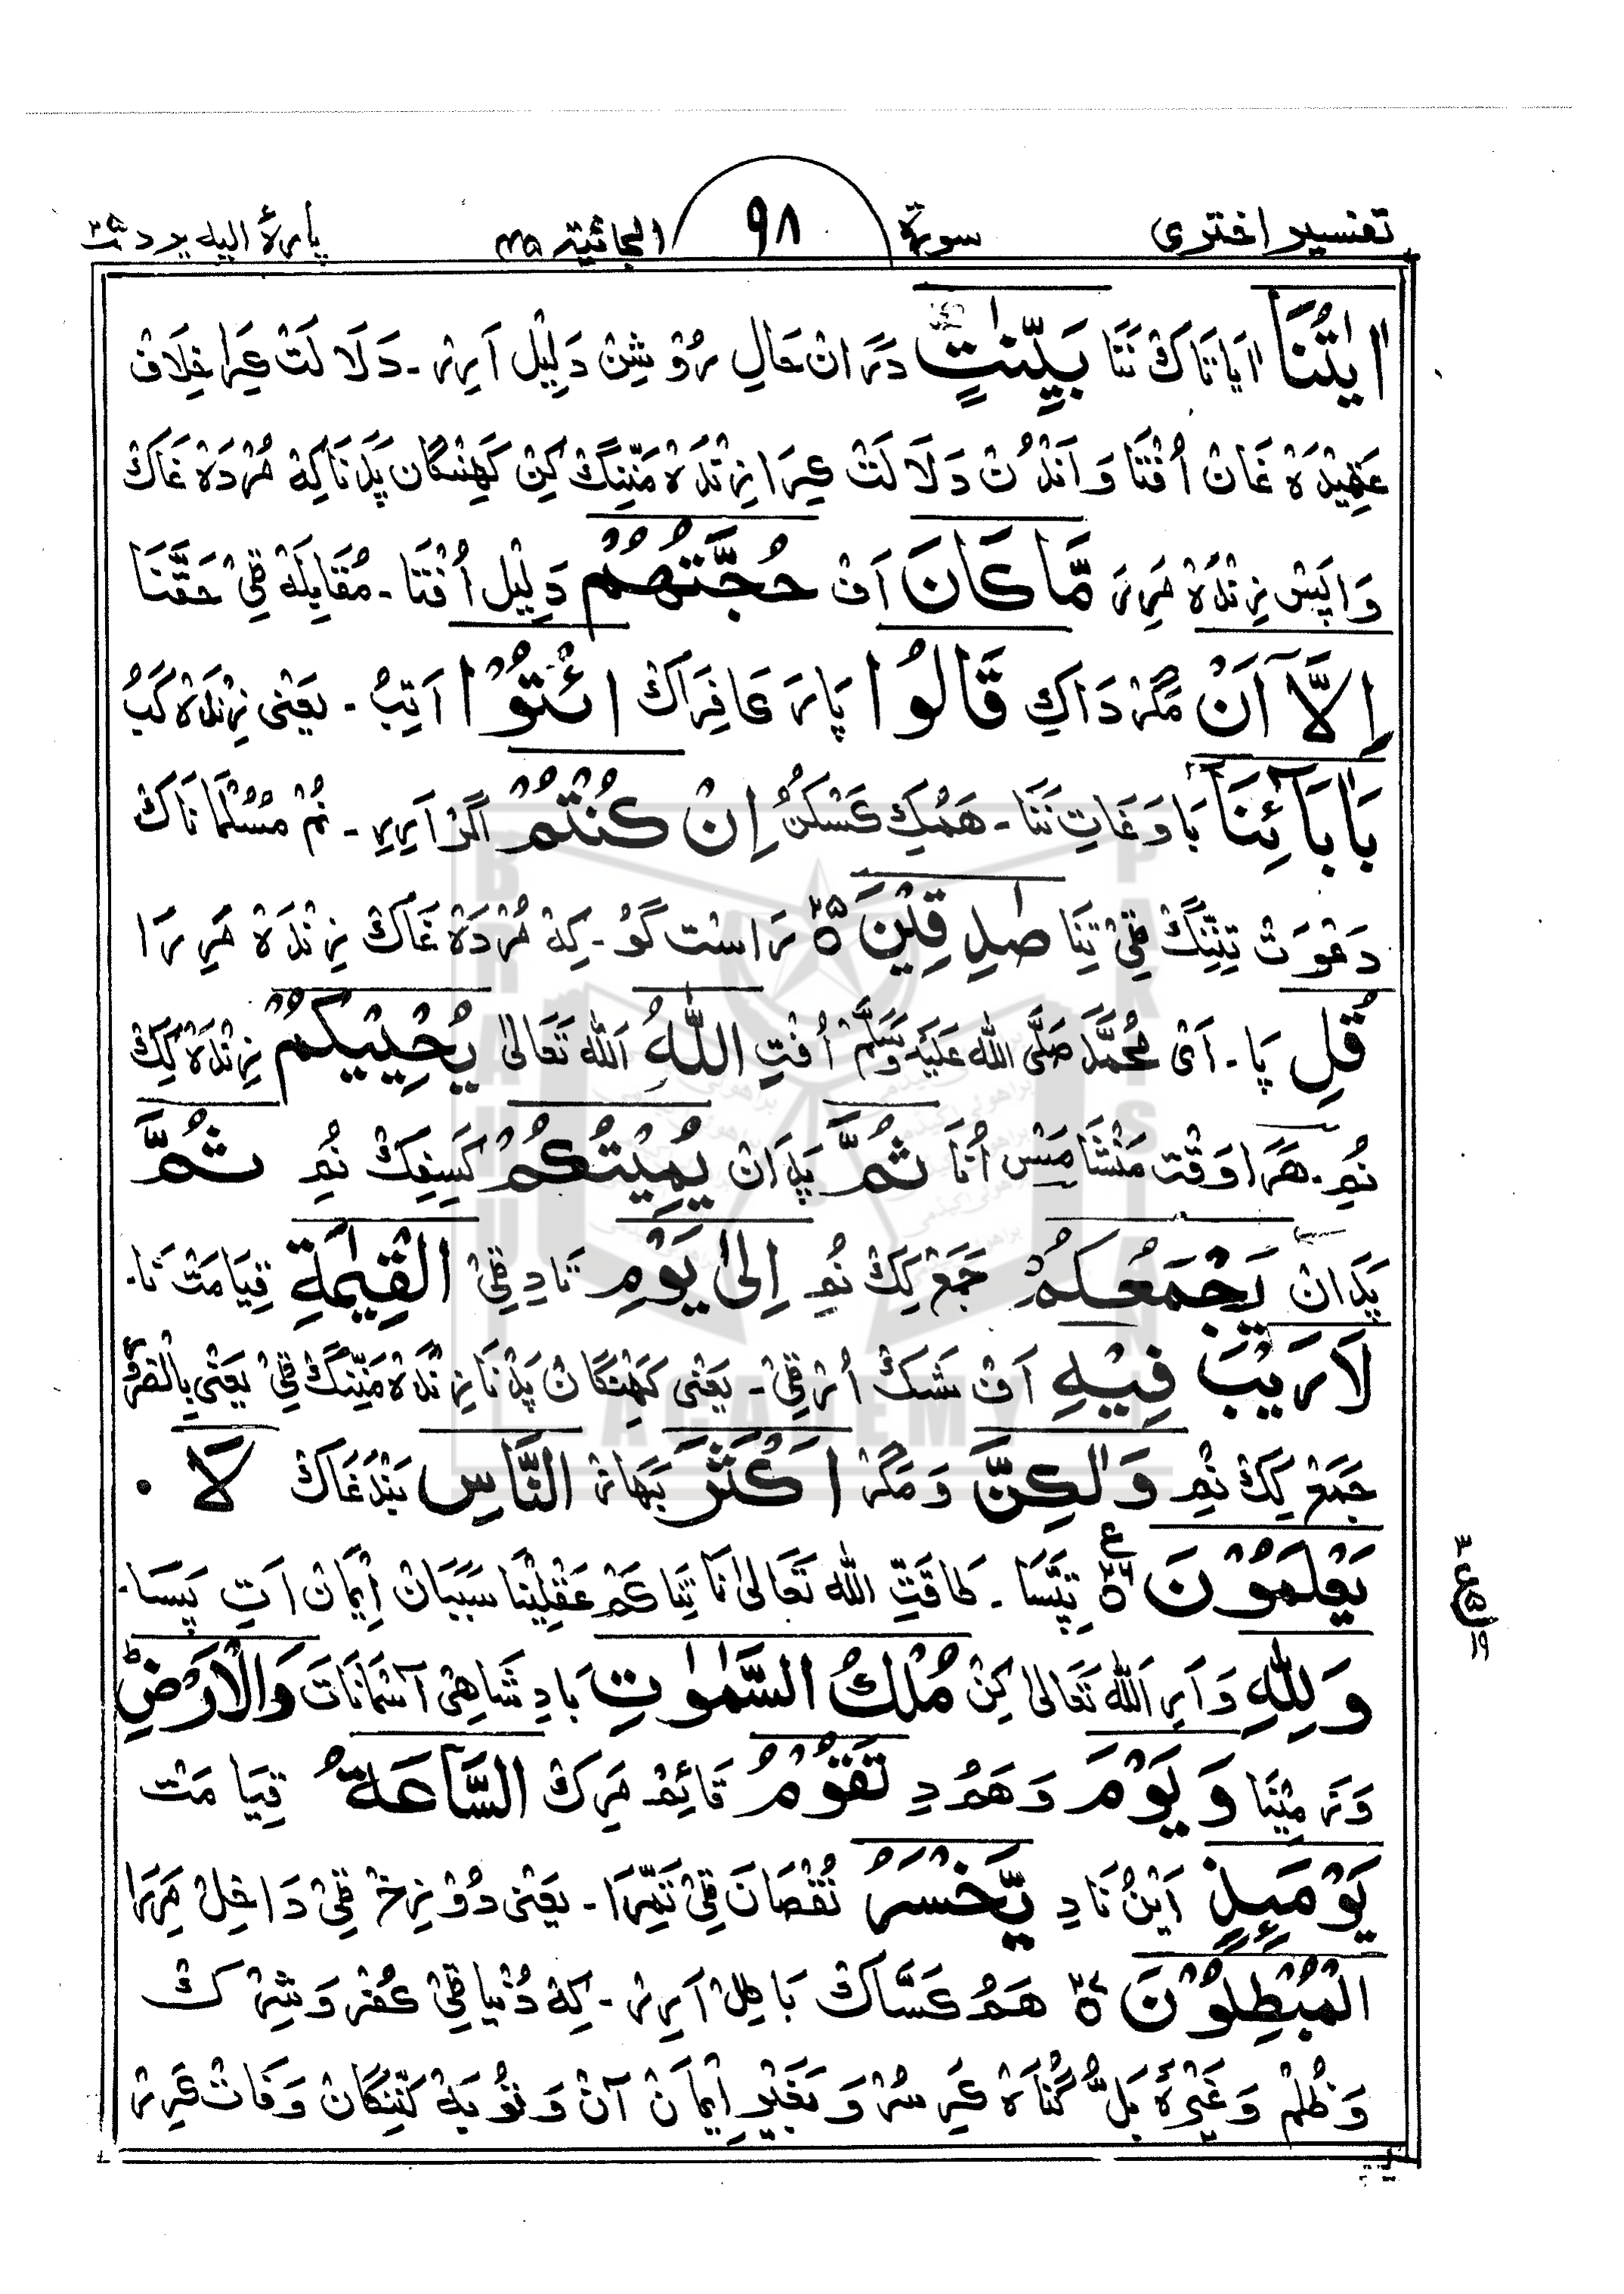 تفسیر اختری سورة ۹۸ الجاثیة ۴۵ پارۀ الیه یرد ۲۵
اٰیٰتُنَا اٰیاتَاکْ نَنَا بَیِّنٰتٍ دَرَانْ حَالِ رُوْشِنْ دَلِیْل اَرِیْر۔ دَلَالَتْ عِیرَا خِلَافْ
عَقِیْدَہْ غَانْ اُفْتَا وَ اَنْدُنْ دَلَالَتْ عِیرَا زِنْدَہْ مَنِّنِگْ کِنْ کَہِنْگَان پَدْنَا کِہْ مُرْدَہْ غَاکْ
وَاپَسْ زِنْدَہْ مَرِیرَ مَّا کَانَ اَفْ حُجَّتَہُمْ دَلِیْل اُفْتَا۔ مُقَابِلَہْ ٹِیْ حَقَّنَا
اِلَّا آَنْ مَگَرْ دَاکِ قَالُوا پَارَہ عَافِرَاکْ ائْتُوْا اَتِبُ۔ یَعْنِی زِنْدَہْ کَبُ
بِاٰبَآئِنَا بَاوَغَاتِ نَنَا۔ ہَمُکِ کَسْکُنُ اِنْ کُنْتُمْ اَگَرْ اَرِیرِ۔ نُمْ مُسْلْمَانَاکْ
دَعْوَتْ تِنِّنِگْ ٹِیْ تِنَا صٰدِقِیْنَ ۲۵ رَاسْت گَوْ۔ کِہْ مُرْدَہْ غَاکْ زِنْدَہْ مَرِیرَا
قُلِ پَا۔ اَیْ مُحَمَّد صَلَّی اللّٰہ عَلَیْہِ وَسَلَّمْ اُفْتِ اللّٰہُ اَللّٰہ تَعَالیٰ یُحْیِیْکُمْ زِنْدَہْ کِکْ
نُمِ۔ ہَرَا وَقْت مَنْشَا مَسْ اُنَا ثُمَّ پَدَانْ یُمِیْتُکُمْ کَسِفِکْ نُمِ ثُمَّ
پَدَانْ یَجْمَعُکُمْ جَمَعْ کِکْ نُمِ اِلیٰ یَوْمِ نَادِ ٹِیْ الْقِیٰمَۃِ قِیَامَتْ نَا۔
لَا رَیْبَ فِیْہِ اَفْ شَکْ اُرْٹِیْ۔ یَعْنِی کَہِنْگَانْ پَدْنَا زِنْدَہْ مَنِّنِگْ ٹِیْ یَعْنِی بِالضَّرُوْر
جَمَعْ کِکْ نُمِ وَلٰکِنَّ وَمَگَرْ اَکْثَرَ بَہَازْ النَّاسِ بَنْدَغَاکْ لَا۔
یَعْلَمُوْنَ ۲۶ تِپَّسَا۔ طَاقَتِّ اللّٰہ تَعَالیٰ نَا تِنَا کَمْ عَقْلِیْنَا سَبَبَانْ اِیْمَانْ اَتِ پَسَا۔
وَلِلّٰہِ وَ اَرِ اَللّٰہ تَعَالیٰ کِنْ مُلْکُ السَّمٰوٰتِ بَادِشَاہِیْ آسْمَانَاتَ وَالْاَرْضِ ؕ
وَزَمِیْنَا وَیَوْمَ وَہَمُ دِ تَقُوْمُ قَائِمْ مَرِکْ السَّاعَۃُ قِیَامَتْ
یَوْمَئِذٍ اَیْنُ نَادِ یَّخْسَرُ نُقْصَانَ ٹِیْ تَمِّرَا۔ یَعْنِی دُوْزِخْ ٹِیْ دَاخِلْ مَرِرَا
الْمُبْطِلُوْنَ ۲۷ ہَمُ کَسَّاکْ بَاطِلْ اَرِیْر۔ کِہْ دُنْیَا ٹِیْ کُفْر وَ شِرْک
وَ ظُلْمْ وَ غَیْرَہْ بَلُّ گُنَاہْ عَرِسُرْ وَ بَغَیْرِ اِیْمَانْ آنْ وَ تَوْبَہْ کَنِّنِگَانْ وَفَاتْ عَرِرْ